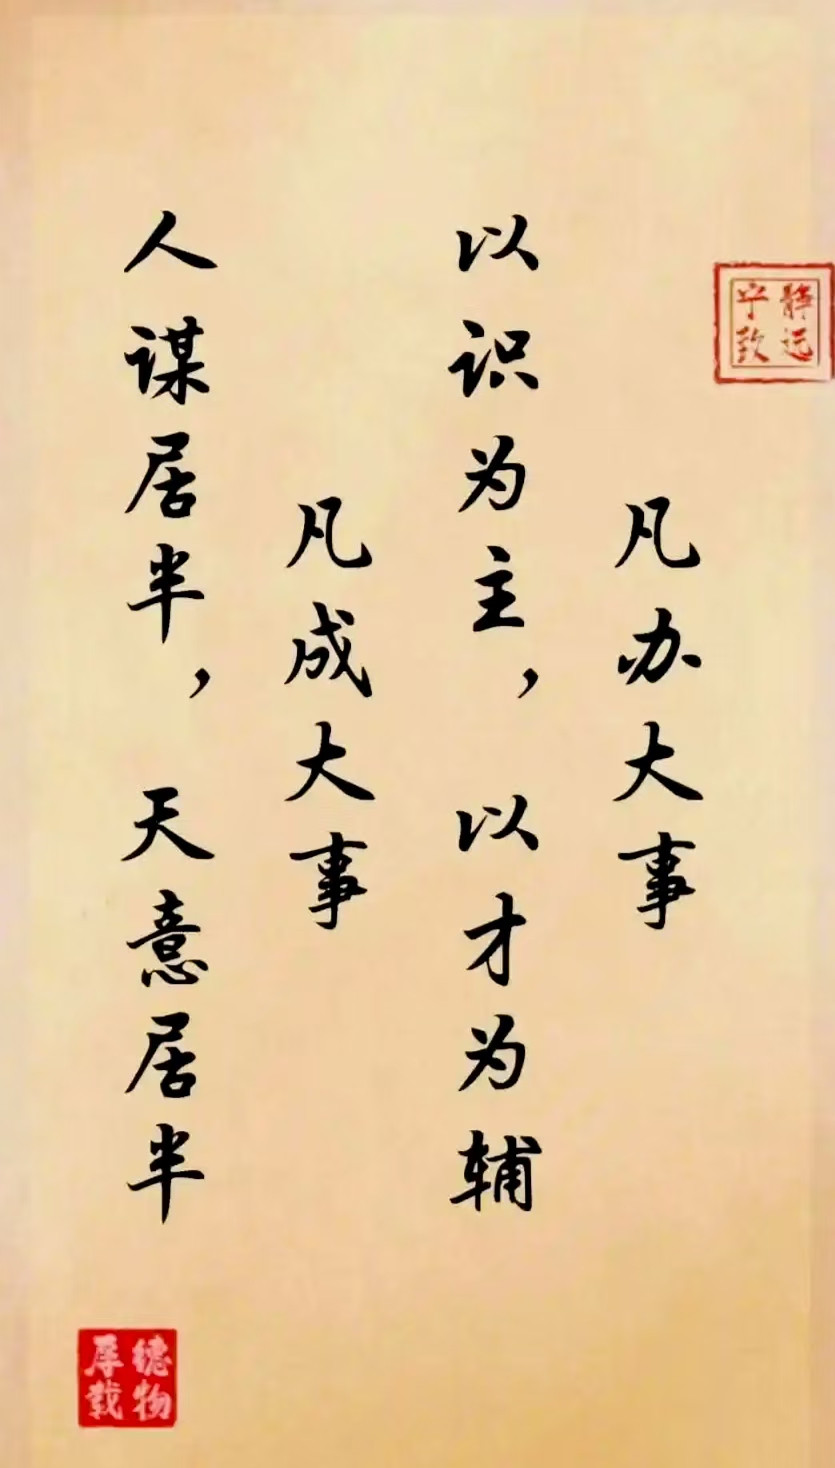 凡办大事
以识为主，以才为辅
凡成大事
人谋居半，天意居半
宁静
致远
厚德
载物